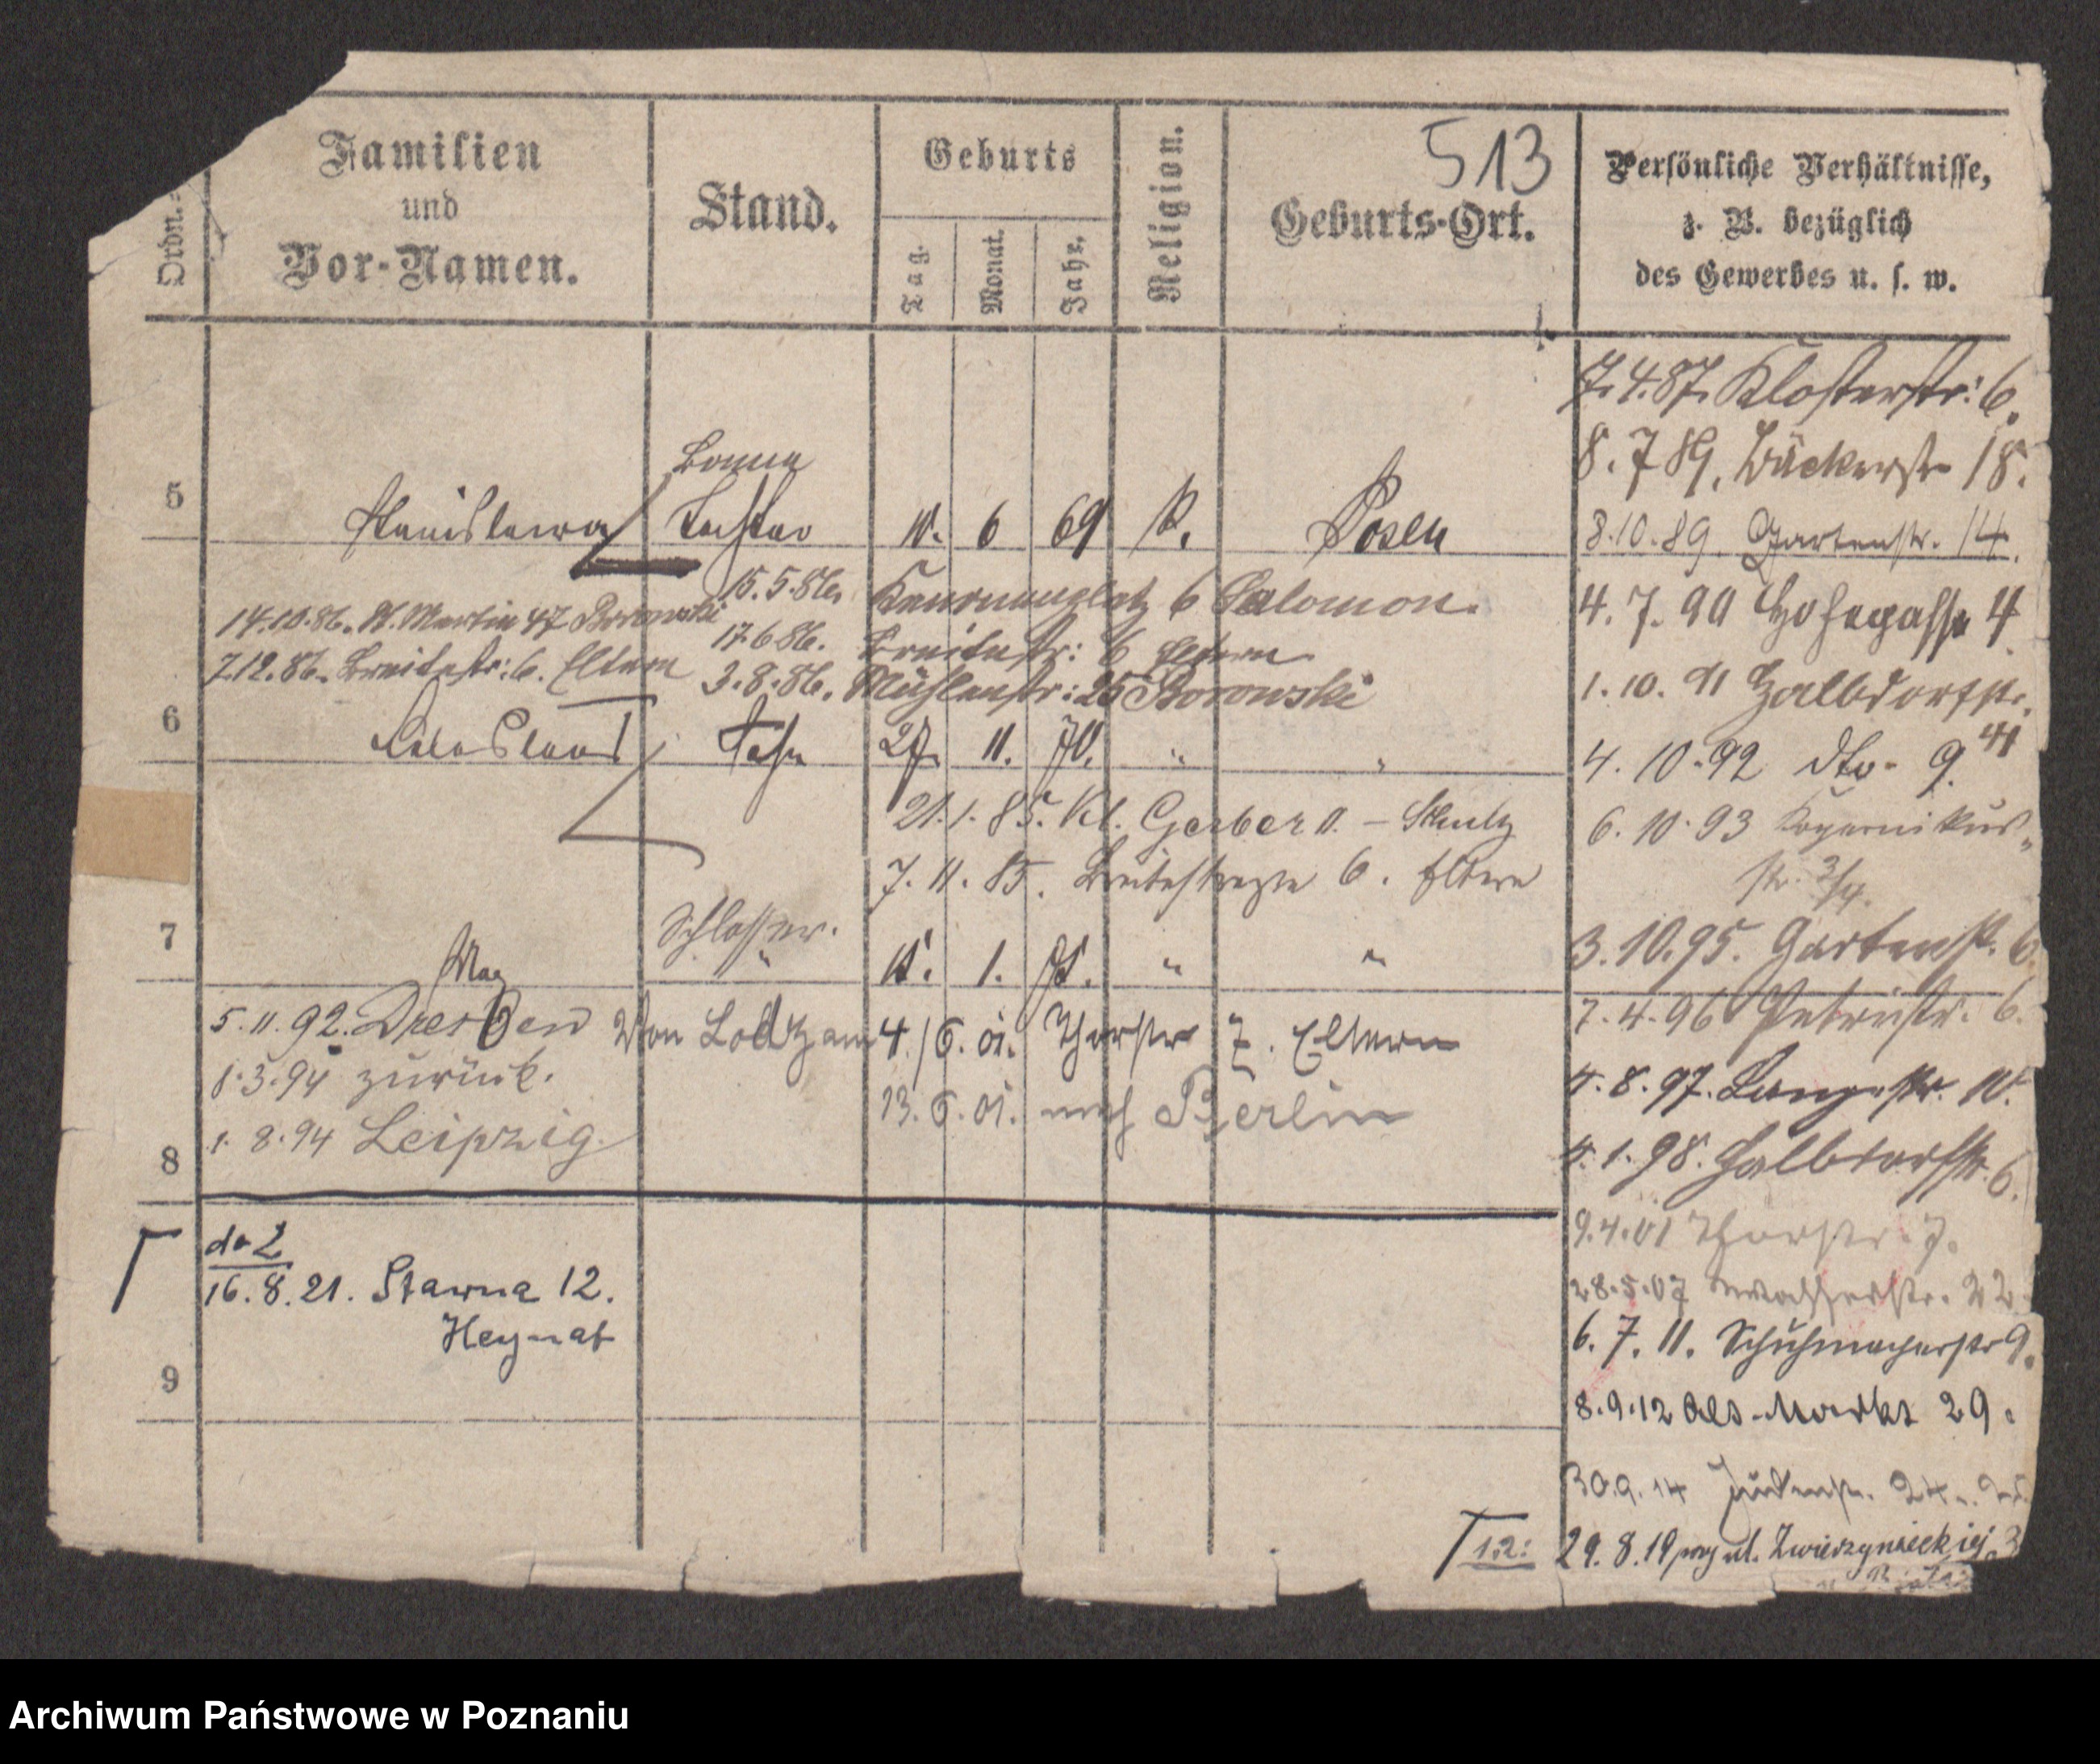 513
Ordn.=
Familien
und
Vor-Namen.
Stand.
Geburts
Tag.
Monat.
Jahr.
Religion.
Geburts-Ort.
Persönliche Verhältnisse,
z. B. bezüglich
des Gewerbes u. s. w.
7.4.87. Klosterstr: 6.
8.7 89. Bäckerstr 18.
3.10.89. Gartenstr. 14.
4.7.90 Hohegasse 4
1.10.91 Halbdorfstr.
41
4.10.92 dto. 9.
6.10.93 Kopernikus-
str. 3/4.
3.10.95. Gartenstr. 6.
7.4.96 Petristr. 6.
4.8.97. Langestr. 10.
4.1.98. Halbdorfstr. 6.
9.4.01 Thorstr. 7.
28.5.07 Wasserstr. 22
6.7.11. Schuhmacherstr 9.
8.9.12 Alt-Markt 29.
30.9.14 Judenstr.
29.8.19 przy ul. Zwierzynieckiej 3
5
Bonna
Stanislawa Tochter 10. 6 69 k. Posen
15.5.86. 6 Salomon.
14.10.86. St. Martin 47 Borowski
17.6.86. Breitestr: 6 Eltern
7.12.86. Breitestr: 6. Eltern
3.8.86. Mühlenstr: 25 Borowski
6
Sohn 27 11. 70. " "
21.1.85. Kl. Gerber 11. – Schulz
7.11.85. Breitestraße 6. Eltern
7
Schlosser.
Max " 15. 1. 75. " "
5.11.92. Dresden
Von Lodz am 4./6.01. Thorstr 7. Eltern
1.3.94 zurück.
13.6.01. nach Berlin
1.8.94 Leipzig.
8
do 2
16.8.21. Stawna 12.
9
1.2.
Archiwum Państwowe w Poznaniu